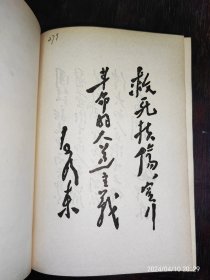 救死扶傷，实行
革命的人道主義
毛泽东
271
2024/04/10 20:29